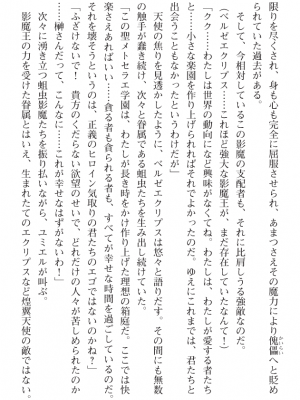 限りを尽くされ、身も心も完全に屈服させられ、あまつさえその魔力により傀儡へと貶め
かいらい
られていた過去がある。
　そして、今相対しているこの影魔の支配者も、それに比肩しうる強敵なのだ。
（ベルゼエクリプス……これほど強大な影魔王が、まだ存在していたなんて！）
「クク……わたしは世界の動向になど興味がなくてね。わたしは、わたしが愛する者たち
と……小さな楽園を作り上げられればそれでよかったのだ。ゆえにこれまでは、君たちと
出会うこともなかったというわけだが」
　天使の焦りを見透かしたように、ベルゼエクリプスは悠々と語りだす。その間にも無数
の触手が蠢き続け、次々と眷属である蛆虫たちを生み出し続けていた。
「この聖メトセラエ学園は、わたしが長き時をかけ作り上げた理想の箱庭だ。ここでは快
楽さえあればいい……貪る者も貪られる者も、すべてが幸せな時間を過ごしているのだ。
それを壊そうというのは、正義のヒロイン気取りの君たちのエゴではないのかね？」
「ふざけないで！　貴方のくだらない欲望のせいで、どれだけの人々が苦しめられたのか
……榊さんだって、こんなに……これが幸せなはずがないわ！」
　次々に湧き立つ蛆虫影魔たちを振り払いながら、ユミエルが叫ぶ。
　影魔王の力を受けた眷属とはいえ、生まれたてのエクリプスなど煌翼天使の敵ではない。